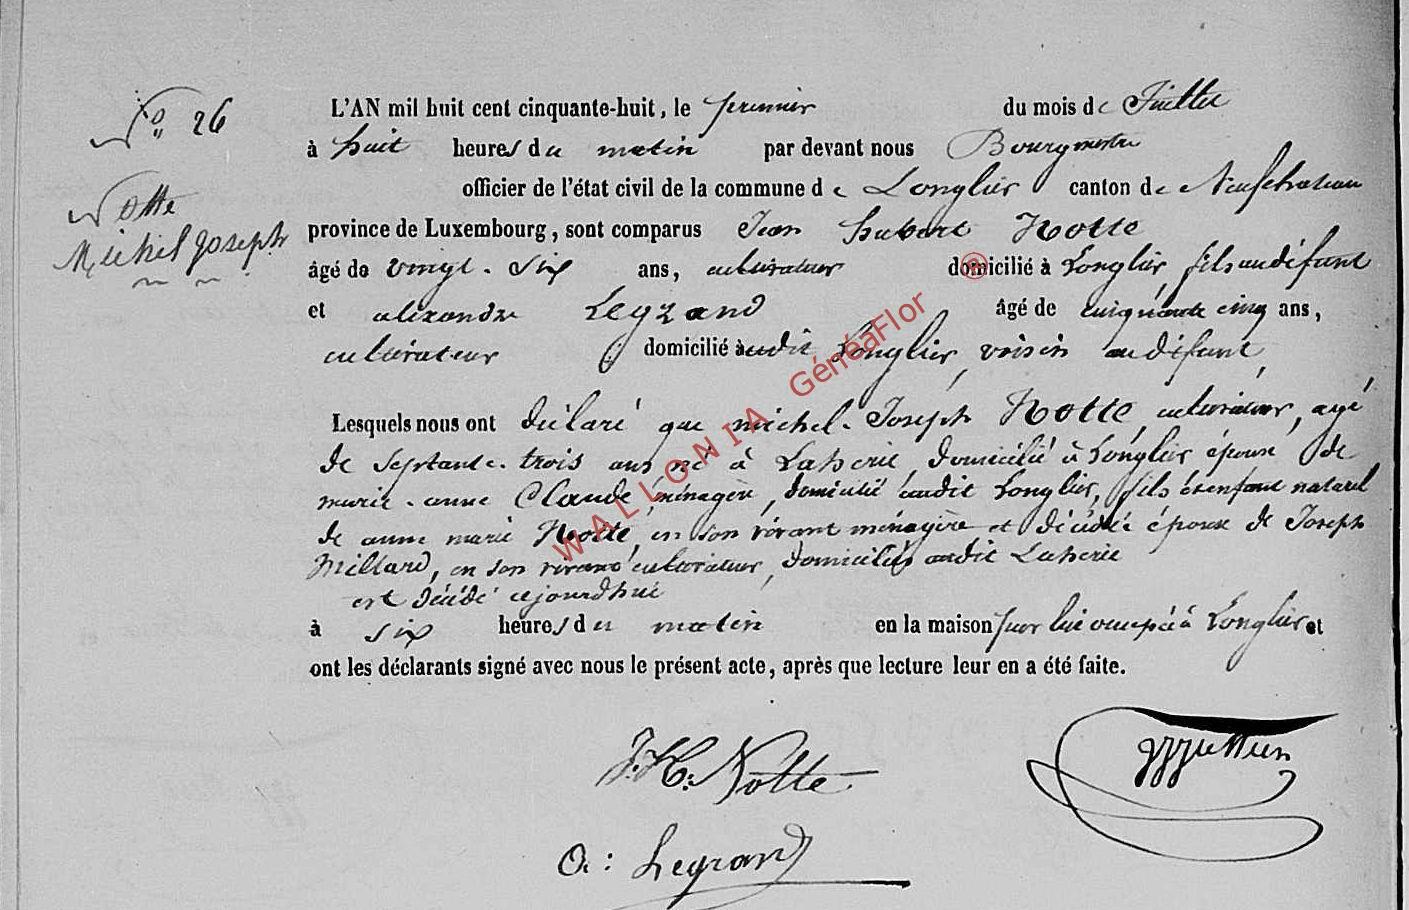 N° 26
Notte
Michel Joseph
L'AN mil huit cent cinquante-huit, le premier du mois de Juillet
à huit heures du matin par devant nous Bourgmestre
officier de l'état civil de la commune de Longlier canton de Neufchateau
province de Luxembourg, sont comparus Jean hubert Notte
âgé de vingt-six ans, cultivateur domicilié à Longlier, fils au défunt
et alexandre Legrand âgé de cinquante cinq ans,
cultivateur domicilié audit Longlier, voisin au défunt,
Lesquels nous ont déclaré que michel-Joseph Notte, cultivateur, agé
de septante-trois ans né à Laherie, domicilié à Longlier époux de
marie-anne Claude, ménagère, domicilié audit Longlier, fils et enfant naturel
de anne marie Notte, en son vivant ménagère et décédée épouse de Joseph
Millard, en son vivant cultivateur, domiciliés audit Laherie
est décédé cejourdhui
à six heures du matin en la maison par lui occupée à Longlier et
ont les déclarants signé avec nous le présent acte, après que lecture leur en a été faite.
J. H. Notte
A: Legrand
WALLONIA GénéaFlor ®